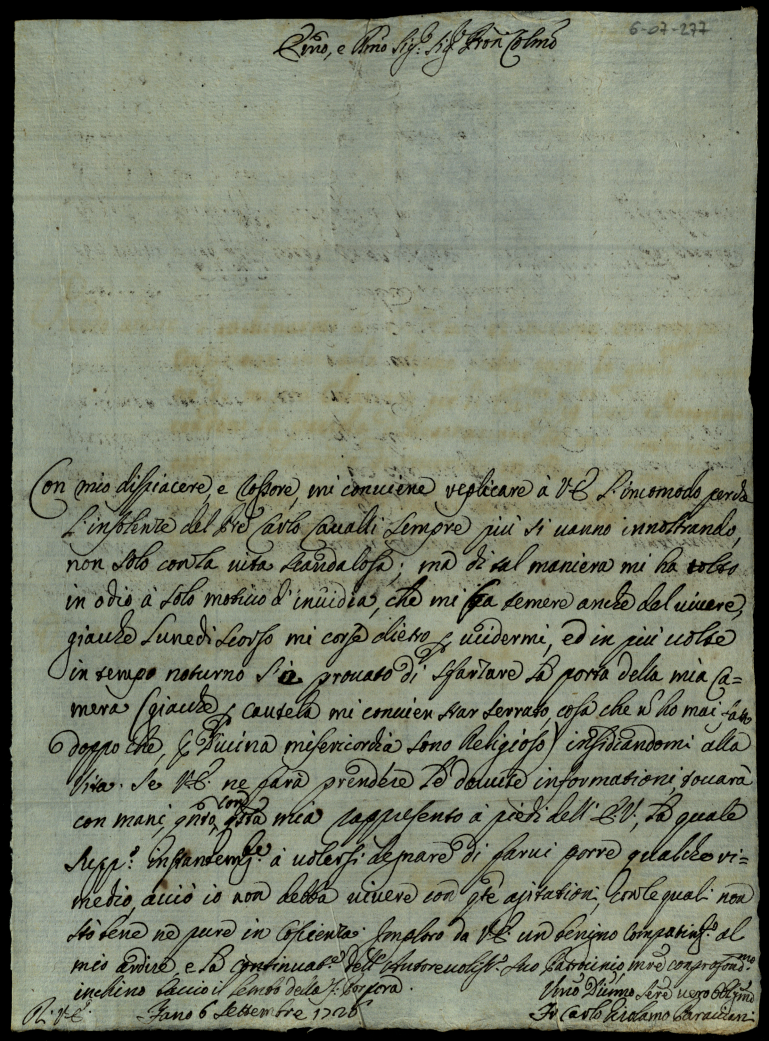 6-07-277
Emo, e Rmo Sig.r Sig.r Pron Colmo
Con mio dispiacere, e rossore, mi conviene replicare à V.E. l'incomodo perche
l'insolente del Pre Carlo Cavalli sempre più si vanno innoltrando,
non solo con la vita scandalosa; mà di tal maniera mi ha tolto
in odio à solo motivo d'invidia, che mi fa temere anche dal vivere,
giache Lunedì scorso mi corse dietro p ucidermi, ed in più volte
in tempo noturno si è provato di sfartare la porta della mia Ca=
mera (giache p cautela mi convien star serrato, cosa che ñ ho mai fatto
doppo che, p Divina misericordia sono Religioso) insidiandomi alla
vita. Se V.E. ne farà prendere le dovute informationi, toccarà
con mani, qnto, con qsta mia rappresento à piedi dell'E.V., la quale
supp.o instantem.te à volersi degnare di farvi porre qualche ri=
medio, acciò io non debba vivere con qte agitationi, con le quali non
stò bene ne pure in coscienza. Imploro da V.E. un benino compatim.to al
mio ardire, e la continuat.e dell'Autorevoliss.o suo Patrocinio, mre con profond.mo
inchino baccio il lembo della S. Porpora.
Di V.E. Fano 6 Settembre 1726
Umo Dmo Sere vero Obligmo
Fr Carlo Girolamo